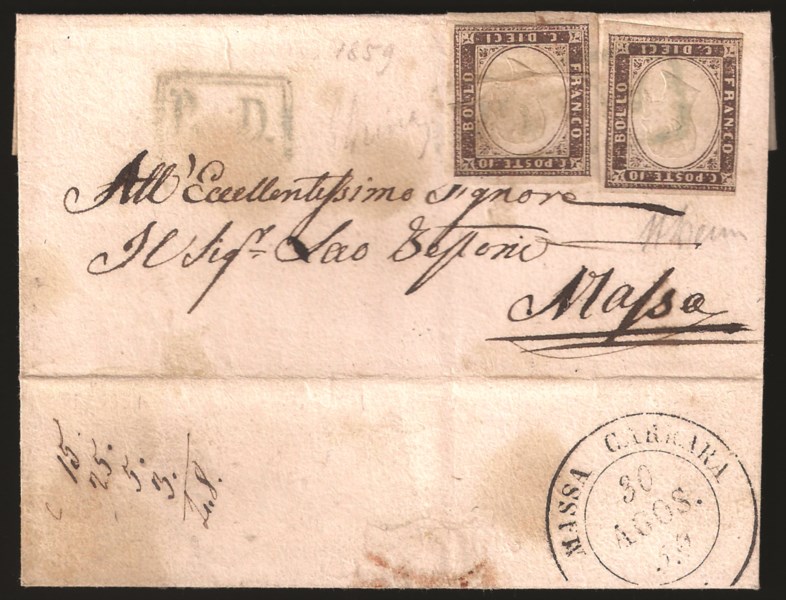 1859
P. D.
C. DIECI
BOLLO
FRANCO
C. POSTE. 10
C. DIECI
BOLLO
FRANCO
C. POSTE. 10
All' Eccellentissimo Signore
Il Sigr. Leo
Massa
15.
25.
5.
3.
48.
MASSA CARRARA
30
AGOS.
59